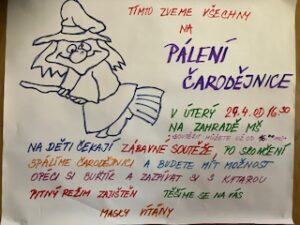 TÍMTO ZVEME VŠECHNY
NA
PÁLENÍ
ČARODĚJNICE
V ÚTERÝ 29.4. OD 16:30
NA ZAHRADĚ MŠ
SOUTĚŽIT MŮŽETE UŽ OD
NA DĚTI ČEKAJÍ ZÁBAVNÉ SOUTĚŽE, PO SKONČENÍ
SPÁLÍME ČARODĚJNICI A BUDETE MÍT MOŽNOST
OPÉCI SI BUŘTÍC A ZAZPÍVAT SI S KYTAROU
PITNÝ REŽIM ZAJIŠTĚN TĚŠÍME SE NA VÁS
MASKY VÍTÁNY